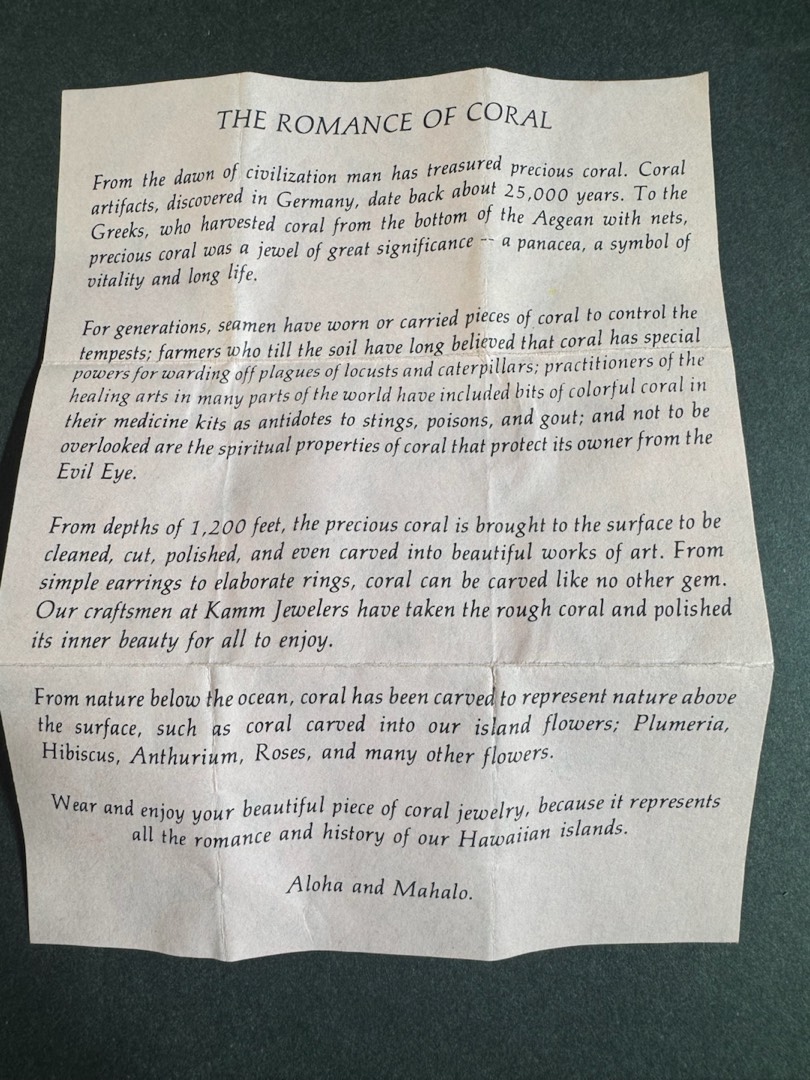 THE ROMANCE OF CORAL
From the dawn of civilization man has treasured precious coral. Coral
artifacts, discovered in Germany, date back about 25,000 years. To the
Greeks, who harvested coral from the bottom of the Aegean with nets,
precious coral was a jewel of great significance -- a panacea, a symbol of
vitality and long life.
For generations, seamen have worn or carried pieces of coral to control the
tempests; farmers who till the soil have long believed that coral has special
powers for warding off plagues of locusts and caterpillars; practitioners of the
healing arts in many parts of the world have included bits of colorful coral in
their medicine kits as antidotes to stings, poisons, and gout; and not to be
overlooked are the spiritual properties of coral that protect its owner from the
Evil Eye.
From depths of 1,200 feet, the precious coral is brought to the surface to be
cleaned, cut, polished, and even carved into beautiful works of art. From
simple earrings to elaborate rings, coral can be carved like no other gem.
Our craftsmen at Kamm Jewelers have taken the rough coral and polished
its inner beauty for all to enjoy.
From nature below the ocean, coral has been carved to represent nature above
the surface, such as coral carved into our island flowers; Plumeria,
Hibiscus, Anthurium, Roses, and many other flowers.
Wear and enjoy your beautiful piece of coral jewelry, because it represents
all the romance and history of our Hawaiian islands.
Aloha and Mahalo.